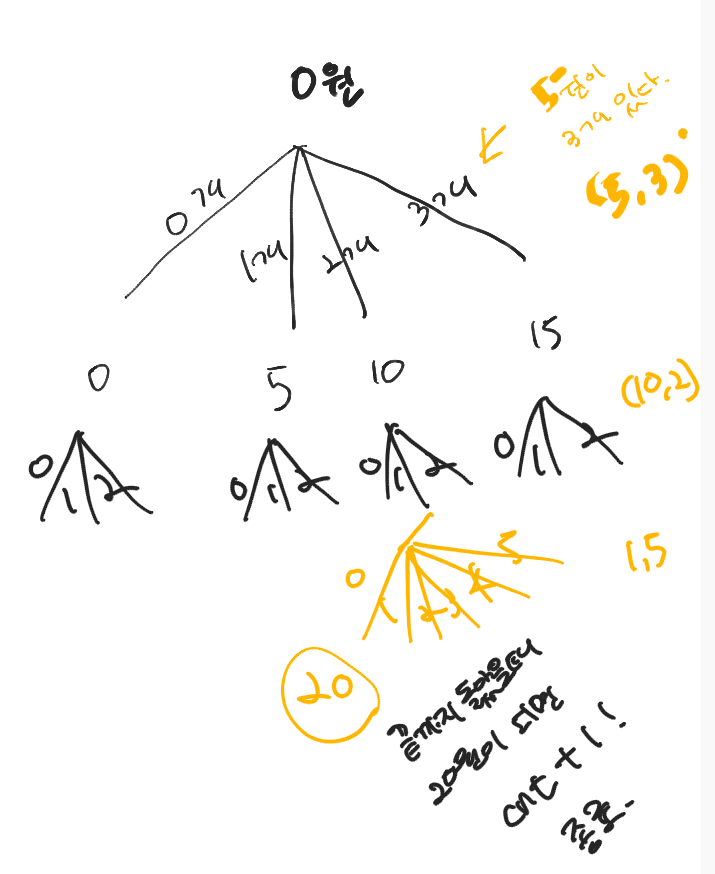 0원
5원이
3개 있다.
(5,3)
0개
1개
2개
3개
0
5
10
15
(10,2)
0 1 2
0 1 2
0 1 2
0 1 2
1,5
0 1 2 3 4 5
20
끝까지 돌았을때
20원이 되면
cnt + 1!
종료.